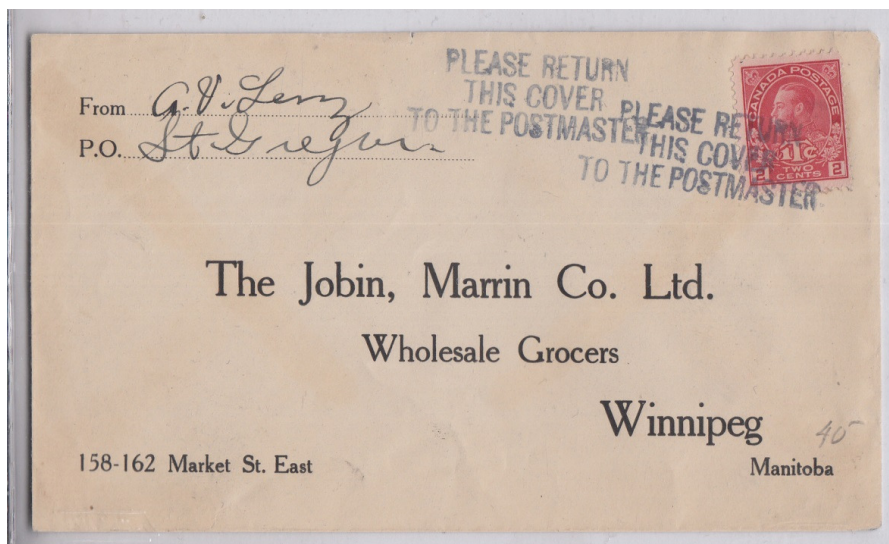 From A. V. Lenz
P.O. St Gregor
PLEASE RETURN
THIS COVER
TO THE POSTMASTER
PLEASE RETURN
THIS COVER
TO THE POSTMASTER
CANADA POSTAGE
1Tc
2 TWO CENTS 2
The Jobin, Marrin Co. Ltd.
Wholesale Grocers
Winnipeg
40
158-162 Market St. East
Manitoba